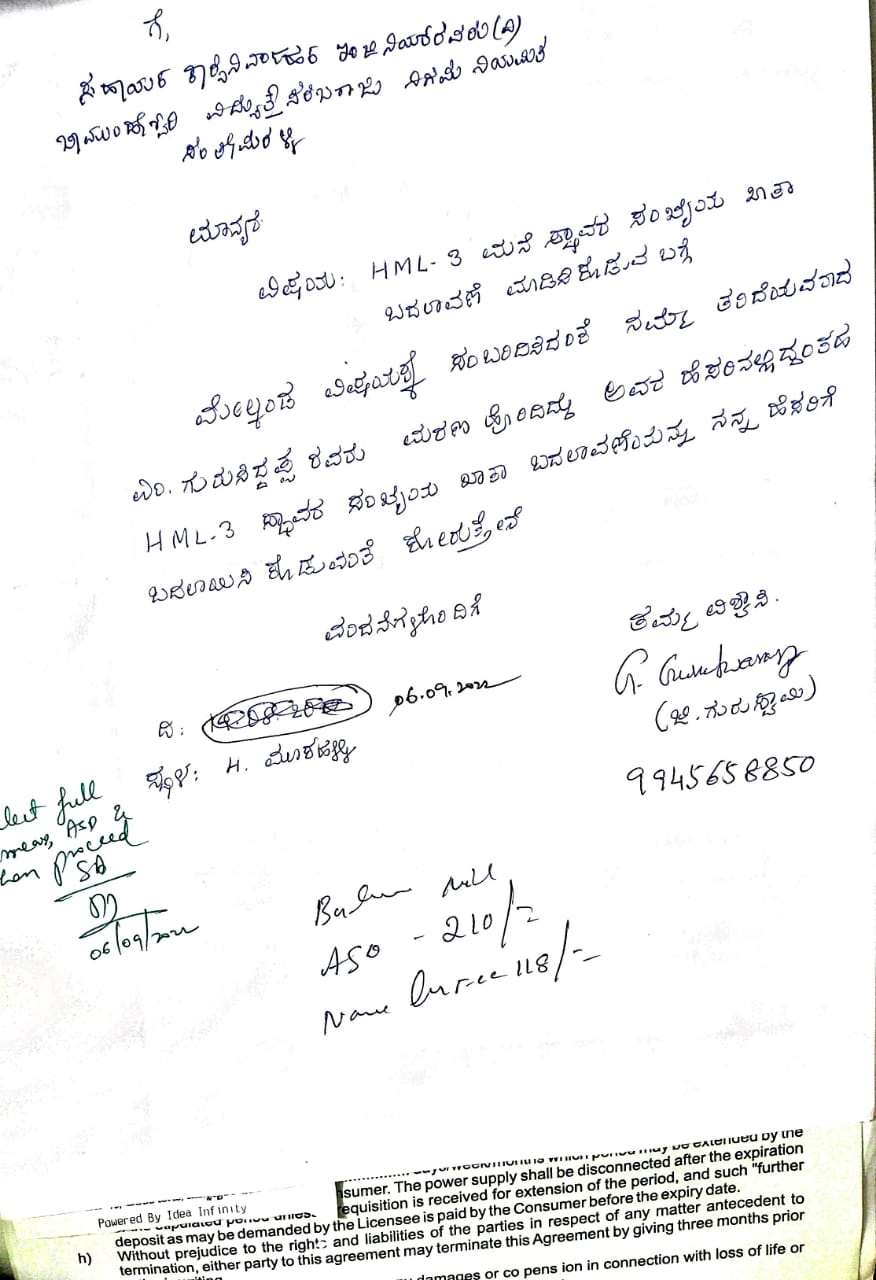 ಗೆ,
ಸಹಾಯಕ ಕಾರ್ಯನಿರ್ವಾಹಕ ಇಂಜಿನಿಯರರವರು(ವಿ)
ಚಾಮುಂಡೇಶ್ವರಿ ವಿದ್ಯುತ್ ಸರಬರಾಜು ನಿಗಮ ನಿಯಮಿತ
ಸಂತೇಮರಳ್ಳಿ
ಮಾನ್ಯರೆ
ವಿಷಯ: HML-3 ಮನೆ ಸ್ಥಾವರ ಸಂಖ್ಯೆಯ ಖಾತಾ
ಬದಲಾವಣೆ ಮಾಡಿಸಿಕೊಡುವ ಬಗ್ಗೆ
ಮೇಲ್ಕಂಡ ವಿಷಯಕ್ಕೆ ಸಂಬಂದಿಸಿದಂತೆ ನಮ್ಮ ತಂದೆಯವರಾದ
ಎಂ. ಗುರುಸಿದ್ದಪ್ಪ ರವರು ಮರಣ ಹೊಂದಿದ್ದು ಅವರ ಹೆಸರಿನಲ್ಲಿದ್ದಂತಹ
HML-3 ಸ್ಥಾವರ ಸಂಖ್ಯೆಯ ಖಾತಾ ಬದಲಾವಣೆಯನ್ನು ನನ್ನ ಹೆಸರಿಗೆ
ಬದಲಾಯಿಸಿ ಕೊಡುವಂತೆ ಕೋರುತ್ತೇನೆ
ವಂದನೆಗಳೊಂದಿಗೆ
ತಮ್ಮ ವಿಶ್ವಾಸಿ.
(ಜಿ.ಗುರುಸ್ವಾಮಿ)
ದಿ: 06.09.2022
ಸ್ಥಳ: H. ಮೂಕಹಳ್ಳಿ
9945658850
lect full
ASD &
proceed
06/09/2022
ASD - 210/=
Name 118/-
day/week/months which period may be extended by the
nsumer. The power supply shall be disconnected after the expiration
requisition is received for extension of the period, and such "further
Powered By Idea Infinity
deposit as may be demanded by the Licensee is paid by the Consumer before the expiry date.
h) Without prejudice to the rights and liabilities of the parties in respect of any matter antecedent to
termination, either party to this agreement may terminate this Agreement by giving three months prior
damages or co pens ion in connection with loss of life or